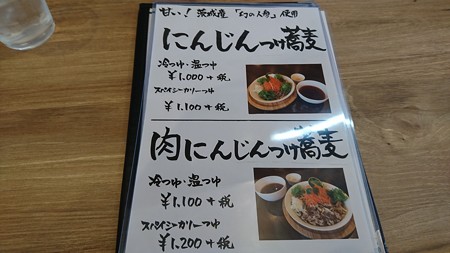 甘い！ 茨城産 「幻の人参」 使用
にんじんつけ蕎麦
冷つゆ・温つゆ
￥1,000+税
スパイシーカリーつゆ
￥1,100+税
肉にんじんつけ蕎麦
冷つゆ・温つゆ
￥1,100+税
スパイシーカリーつゆ
￥1,200+税